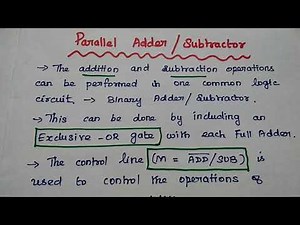 Parallel Adder / Subtractor
→ The addition and subtraction operations
can be performed in one common logic
circuit. → Binary Adder / Subtractor.
→ This can be done by including an
Exclusive -OR gate with each Full Adder.
→ The control line (M = A̅D̅D̅/SUB) is
used to control the operations of